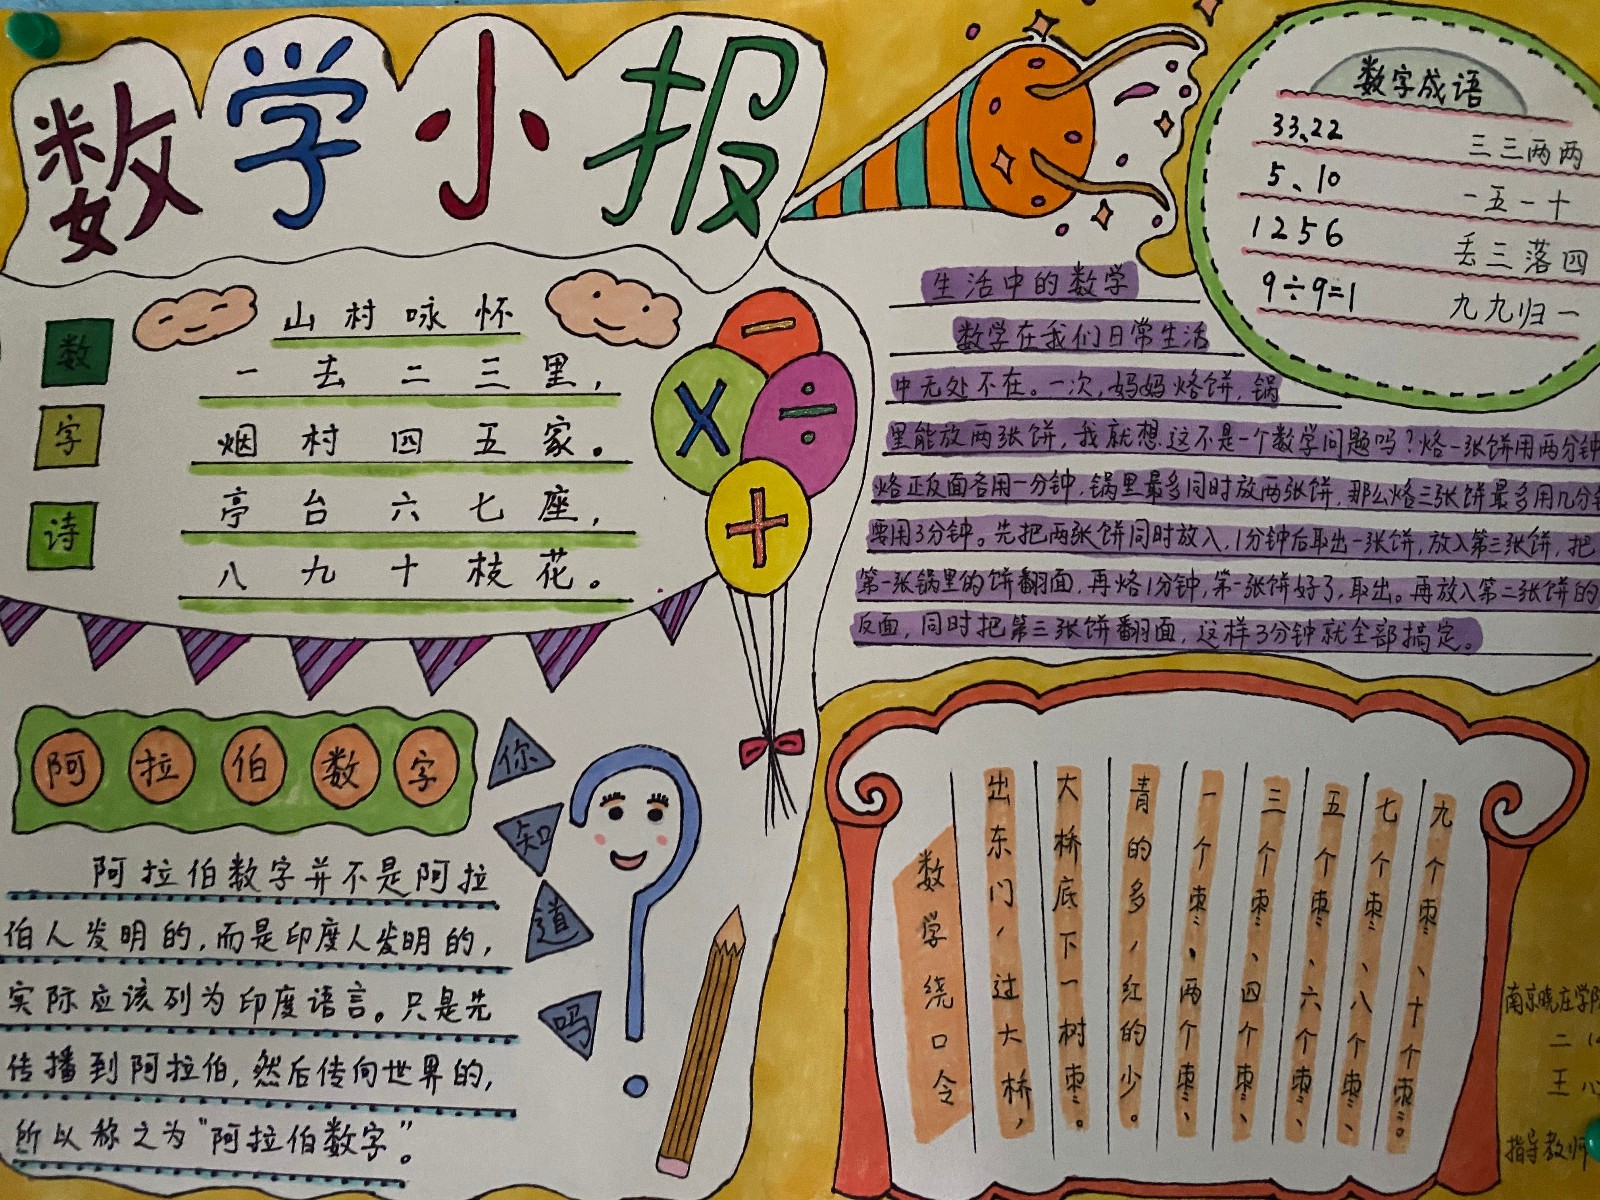 数学小报
数字诗
山村咏怀
一去二三里，
烟村四五家。
亭台六七座，
八九十枝花。
数字成语
33、22 三三两两
5、10 一五一十
1256 丢三落四
9÷9=1 九九归一
生活中的数学
数学在我们日常生活
中无处不在。一次，妈妈烙饼，锅
里能放两张饼，我就想这不是一个数学问题吗？烙一张饼用两分钟
烙正反面各用一分钟，锅里最多同时放两张饼，那么烙三张饼最多用几分钟
要用3分钟。先把两张饼同时放入，1分钟后取出一张饼，放入第三张饼，把
第一张锅里的饼翻面，再烙1分钟，第一张饼好了，取出。再放入第二张饼的
反面，同时把第三张饼翻面，这样3分钟就全部搞定。
阿拉伯数字
你知道吗
阿拉伯数字并不是阿拉
伯人发明的，而是印度人发明的，
实际应该列为印度语言。只是先
传播到阿拉伯，然后传向世界的，
所以称之为“阿拉伯数字”。
+
-
X
÷
数学绕口令
出东门，过大桥，
大桥底下一树枣。
青的多，红的少。
一个枣、两个枣、
三个枣、四个枣、
五个枣、六个枣、
七个枣、八个枣、
九个枣、十个枣。
南京晓庄学院
二
王心
指导教师